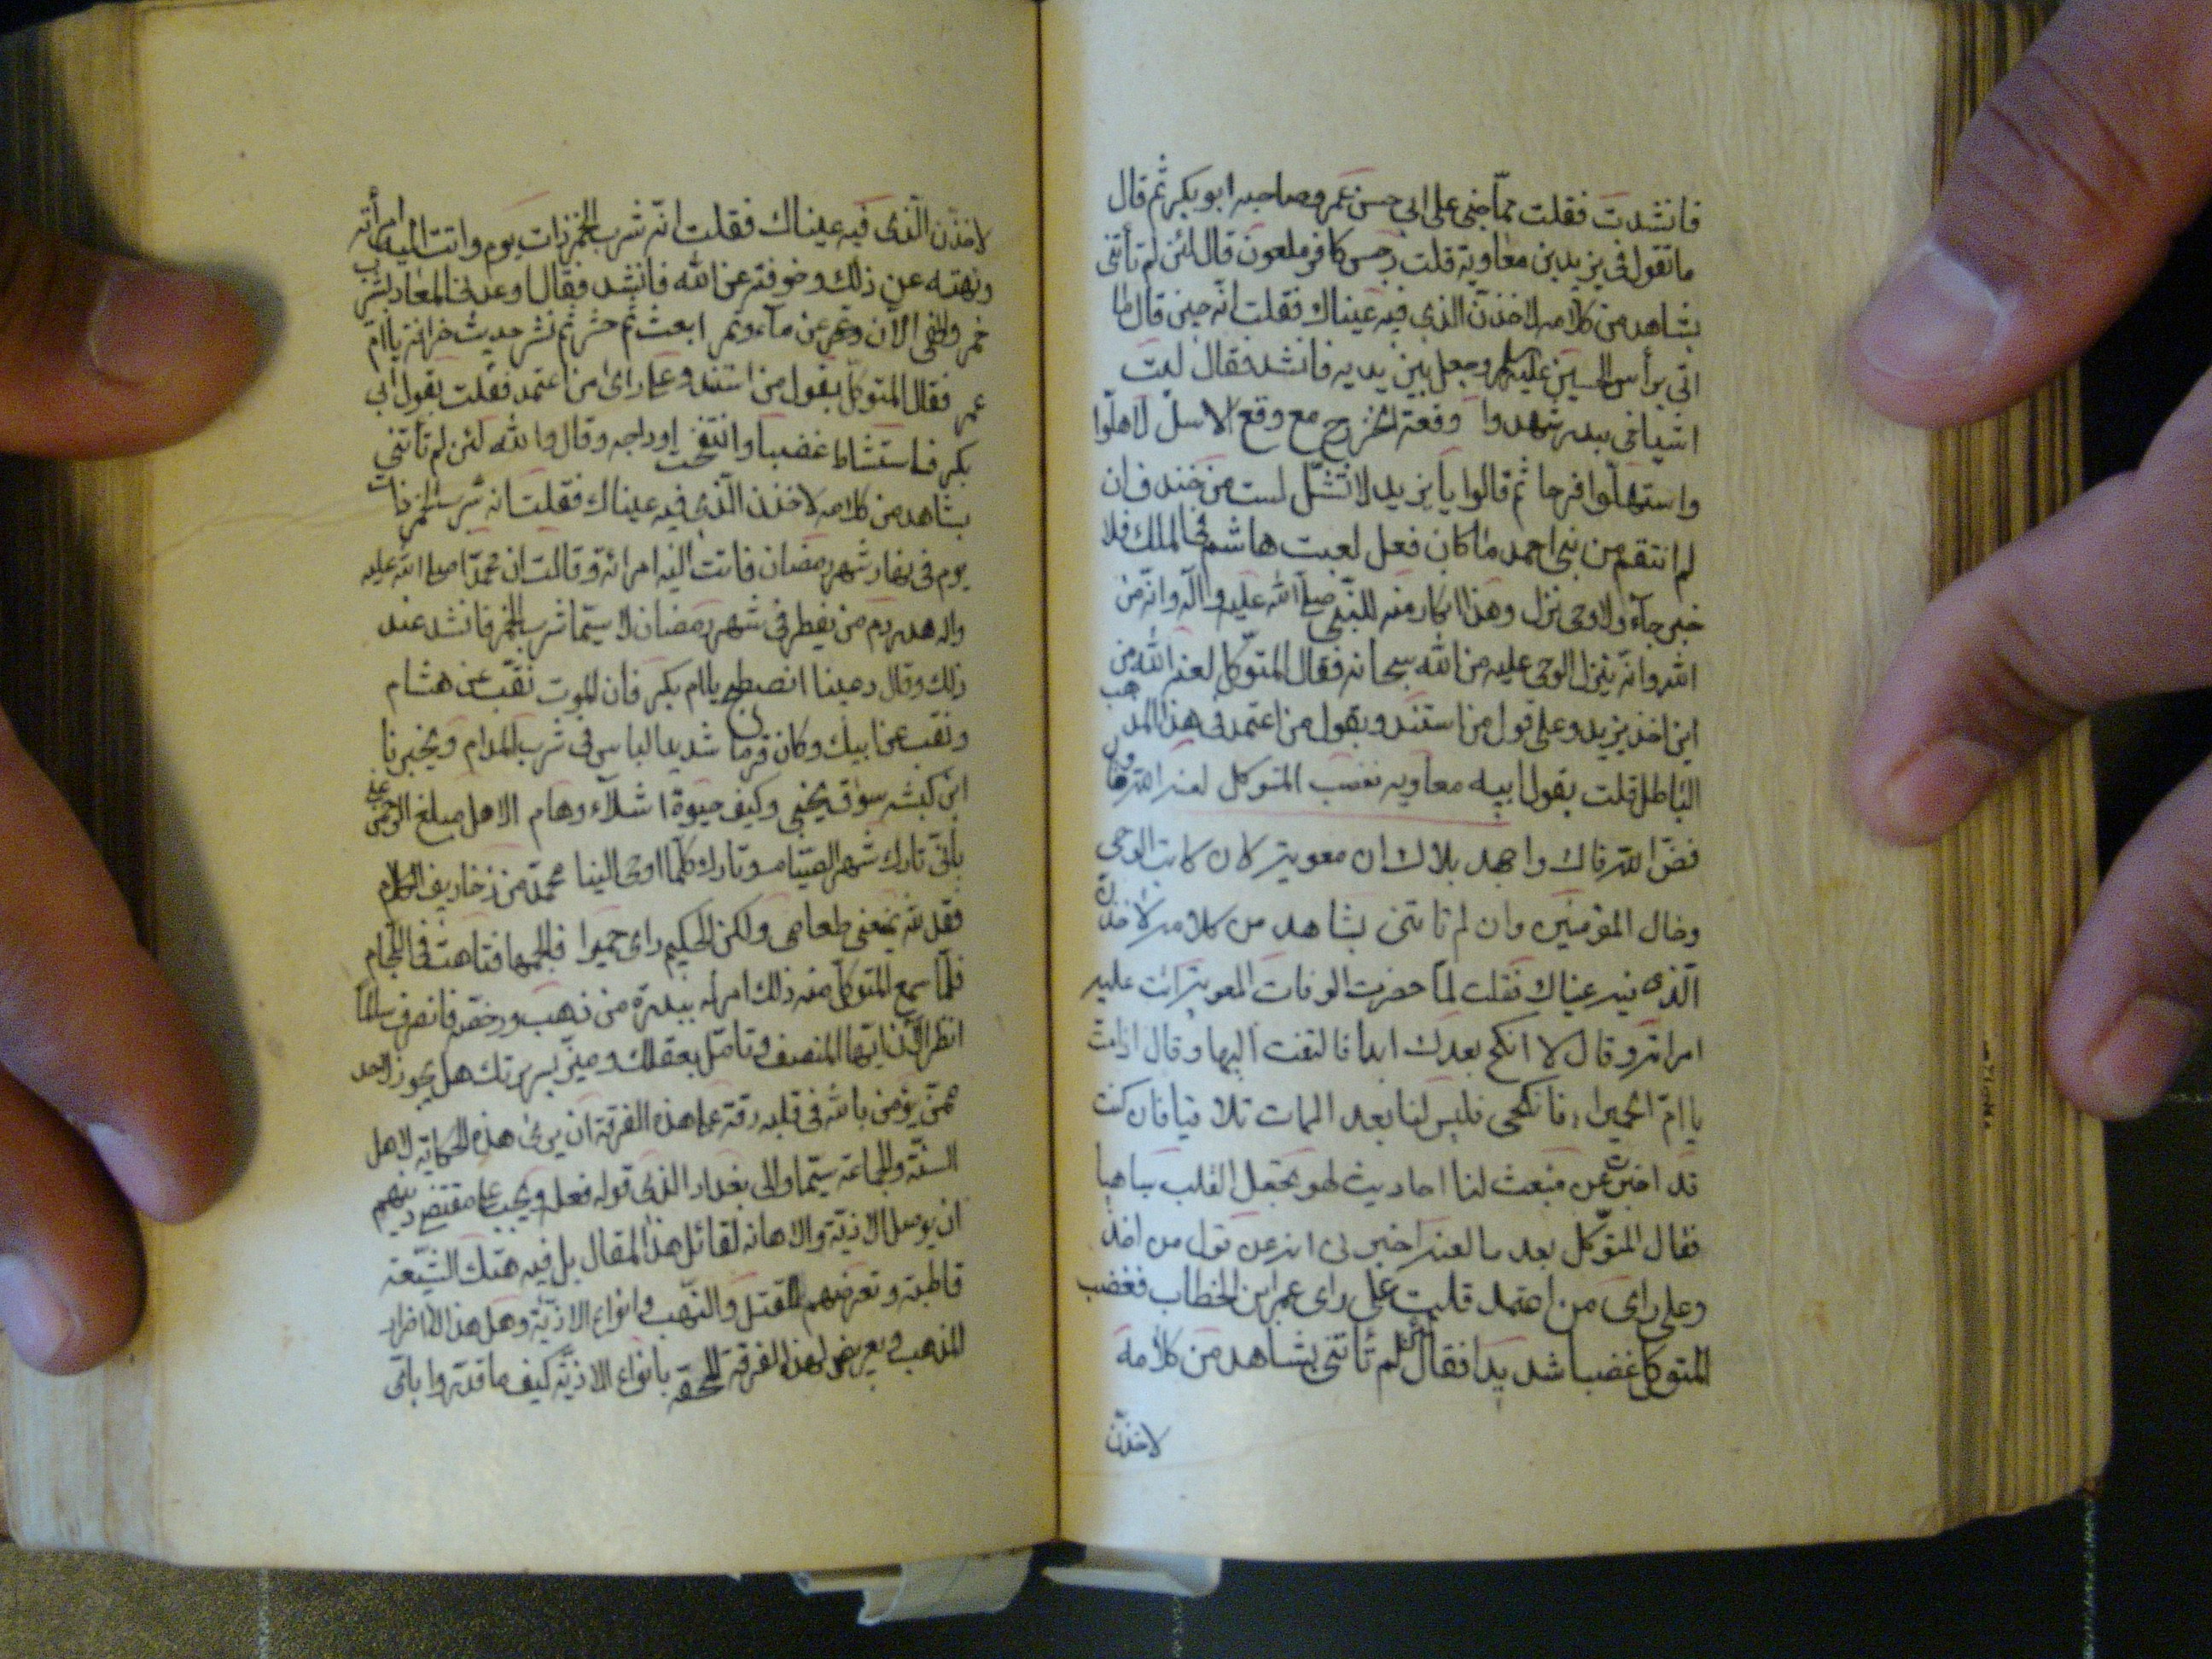 فانشدت فقلت مما جنى على ابى حسن عمر وصاحبه ابو بكر ثم قال
ما تقول فى يزيد بن معاوية قلت رجس كافر ملعون قال لئن لم تأتنى
بشاهد من كلامه لاخذن الذى فيه عيناك فقلت انه حين قال لما
اتى برأس الحسين عليه السلم وجعل بين يديه فانشد فقال ليت
اشياخى ببدر شهدوا وقعة الخزرج مع وقع الاسل لاهلوا
واستهلوا فرحا ثم قالوا يا يزيد لا تشل لست من خندف ان
لم انتقم من بنى احمد ما كان فعل لعبت هاشم فى الملك فلا
خبر جآء ولا وحى نزل وهذا انكار منه للنبى صلى الله عليه وآله وانه من
الله وانه ينزل الوحى عليه من الله سبحانه فقال المتوكل لعنه الله من
اين اخذ يزيد وعلى قول من استند وبقول من اعتمد فى هذا المذهب
الباطل قلت بقول ابيه معاويه فغضب المتوكل لعنه الله وقال
فض الله فاك واجهد بلاك ان معوية كان كاتب الوحى
وخال المؤمنين وان لم تاتنى بشاهد من كلامه لاخذن
الذى فيه عيناك فقلت لما حضرت الوفات لمعوية اتت عليه
امراته وقال لا انكح بعدك ابدا فالتفت اليها وقال اذا مت
يا ام الحميرا فانكحى فليس لنا بعد الممات تلاقيا فان كنت
قد اخبرت عن مبعث لنا احاديث لهو تجعل القلب ساهيا
فقال المتوكل بعد ما لعنه اخبرنى انه عن قول من اخذ
وعلى راى من اعتمد قلت على راى عمر ابن الخطاب فغضب
المتوكل غضبا شديدا فقال لئن لم تأتنى بشاهد من كلامه
لاخذن
لاخذن الذى فيه عيناك فقلت انه شرب الخمر ذات يوم واتت اليه امرأته
ونهته عن ذلك وخوفته عن الله فانشد فقال اوعد فى المعاد بشرب
خمر وانهى الآن عن مآء وتمر ابعث ثم حشر ثم نشر حديث خرافة يا ام
عمر فقال المتوكل بقول من استند وعلى راى من اعتمد فقلت بقول ابى
بكر فاستشاط غضبا وانتفخت اوداجه وقال والله لئن لم تأتنى
بشاهد من كلامه لاخذن الذى فيه عيناك فقلت انه شرب الخمر ذات
يوم فى نهار شهر رمضان فاتت اليه امرأته وقالت ان محمدا صلى الله عليه
واله هدر دم من يفطر فى شهر رمضان لا سيما شرب الخمر فانشد عند
ذلك وقال دعينا نصطبح يا ام بكر فان الموت نقب عن هشام
ونقب عن ابيك وكان قرما شديد الباس فى شرب المدام ويخبرنا
ابن كبشه سوف يحيى وكيف حيوة اشلآء وهام الا هل مبلغ الرحمن عنى
بأنى تارك شهر الصيام وتارك كلما اوحى الينا محمد من زخاريف الكلام
فقل لله يمنعنى طعامى ولكن الحكيم راى حميرا فالجمها فتاهت فى اللجام
فلما سمع المتوكل منه ذلك امر له ببدرة من ذهب ورخصه فانصرف سالما
انظر الآن ايها المنصف وتامل بعقلك وميز بسريرتك هل يجوز لاحد
ممن يؤمن بالله فى قلبه رقة على هذه الفرقة ان يرى هذه الحكاية لاهل
السنة والجماعة سيما والى بغداد الذى قوله فعل ويجب على مقتضى دينهم
ان يوصل الاذية والاهانه لقائل هذا المقال بل فيه هتك الشيعة
قاطبة وتعرضهم للقتل والنهب وانواع الاذية وهل هذا الا اضرار
المذهب وتعريض لهذا الفرقة المحقه بانواع الاذية كيف ما قدروا باى